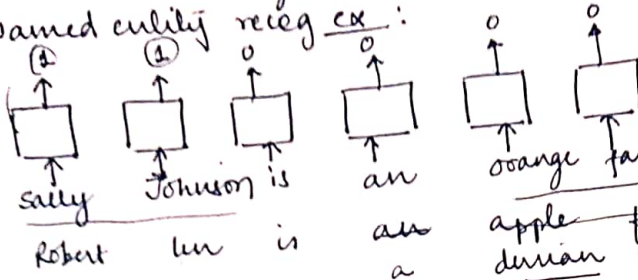 named entity recog ex :
1 1 0 0 0 0
Sally Johnson is an orange fa
Robert lin is an apple f
a durian